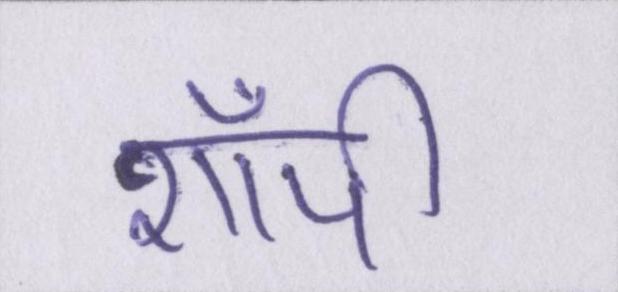 शॉपी